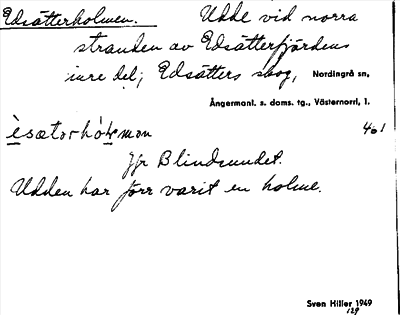 Edsätterholmen. Udde vid norra
stranden av Edsätterfjärdens
inre del; Edsätters skog, Nordingrå sn,
Ångermanl. s. doms. tg., Västernorrl. l.
401
Jfr Blindsundet.
Udden har förr varit en holme.
Sven Hiller 1949
129